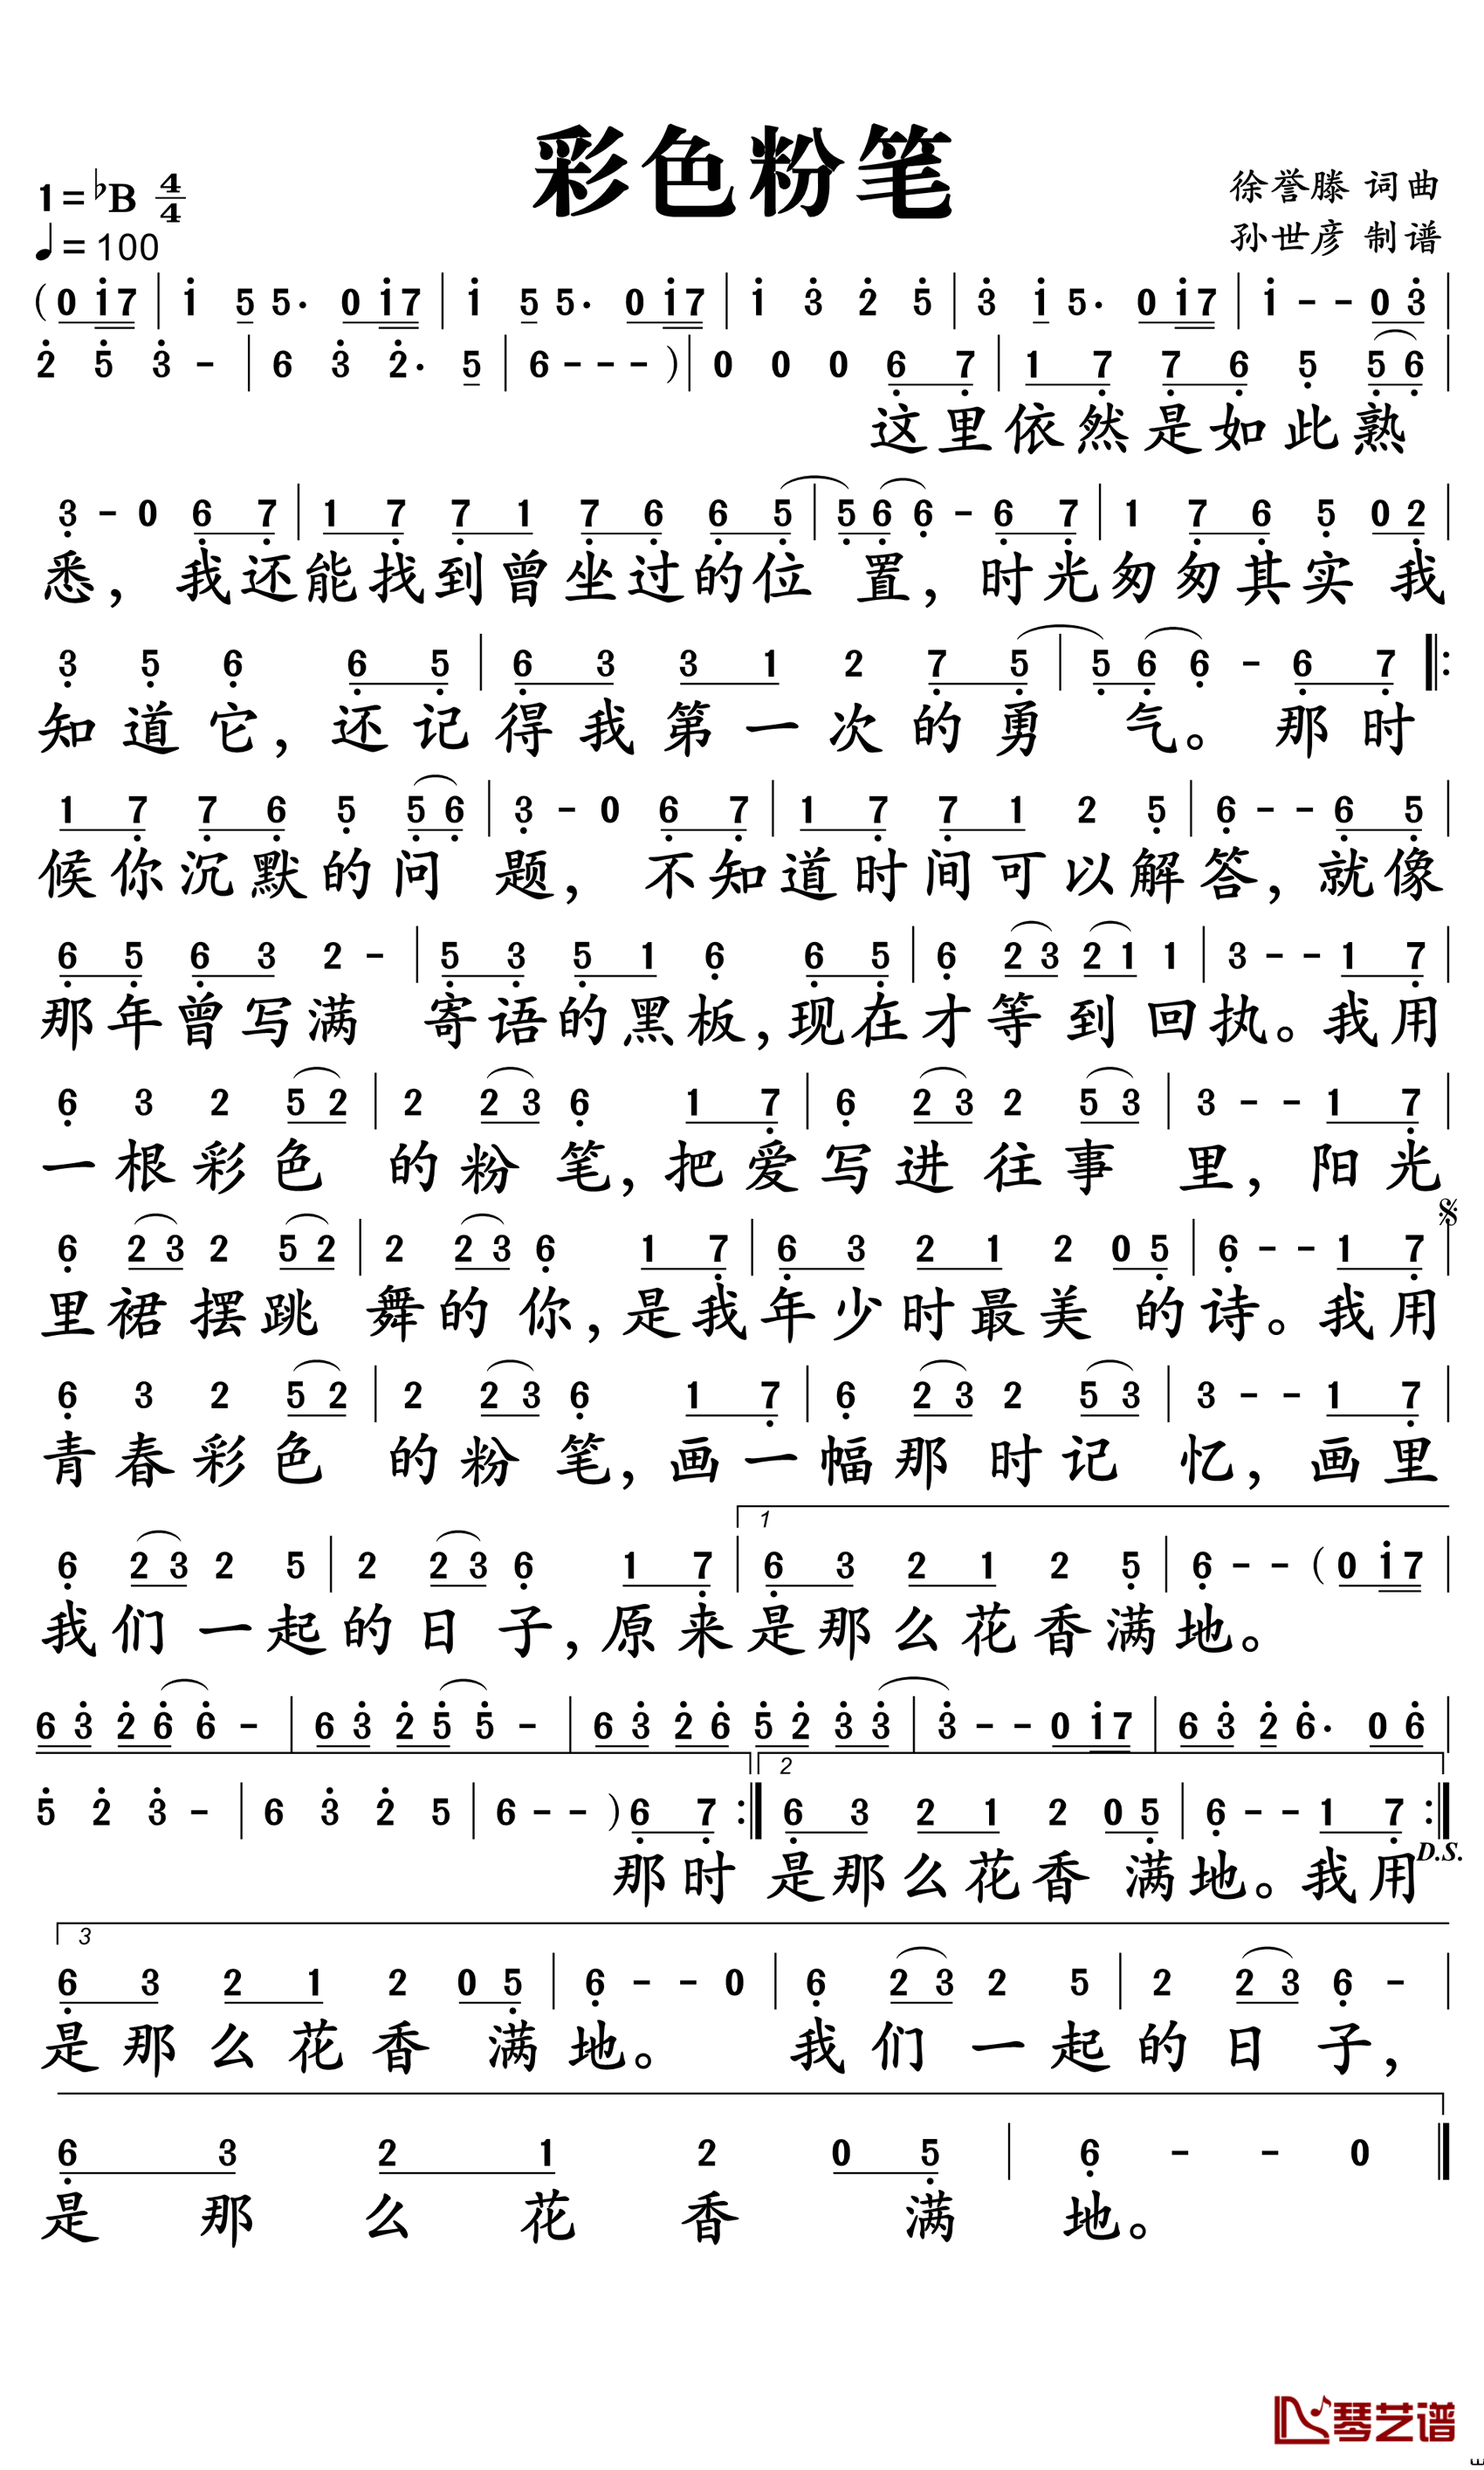 彩色粉笔
1=♭B 4/4
♩=100
徐誉滕 词曲
孙世彦 制谱
(0 i7 | i 5 5· 0 i7 | i 5 5· 0 i7 | i 3̇ 2̇ 5̇ | 3̇ i 5· 0 i7 | i - - 0 3̇ |
2̇ 5̇ 3̇ - | 6 3̇ 2̇· 5 | 6 - - - ) | 0 0 0 6̣ 7̣ | 1 7̣ 7̣ 6̣ 5̣ 5̣ 6̣ |
这里依然是如此熟
3̣ - 0 6̣ 7̣ | 1 7̣ 7̣ 1 7̣ 6̣ 6̣ 5̣ | 5̣ 6̣ 6̣ - 6̣ 7̣ | 1 7̣ 6̣ 5̣ 0 2̣ |
悉，我还能找到曾坐过的位 置，时光匆匆其实 我
3̣ 5̣ 6̣ 6̣ 5̣ | 6̣ 3 3 1 2 7̣ 5̣ | 5̣ 6̣ 6̣ - 6̣ 7̣ |:
知道它，还记得我第一次的勇 气。那时
1 7̣ 7̣ 6̣ 5̣ 5̣ 6̣ | 3̣ - 0 6̣ 7̣ | 1 7̣ 7̣ 1 2 5̣ | 6̣ - - 6̣ 5̣ |
候你沉默的问 题，不知道时间可以解答，就像
6̣ 5̣ 6̣ 3 2 - | 5̣ 3̣ 5̣ 1 6̣ 6̣ 5̣ | 6̣ 2 3 2 1 1 | 3 - - 1 7̣ |
那年曾写满 寄语的黑板，现在才等到回执。我用
6̣ 3 2 5 2 | 2 2 3 6̣ 1 7̣ | 6̣ 2 3 2 5 3 | 3 - - 1 7̣ |
一根彩色 的粉笔，把爱写进往事 里，阳光
6̣ 2 3 2 5 2 | 2 2 3 6̣ 1 7̣ | 6̣ 3 2 1 2 0 5̣ | 6̣ - - 1 7̣ |
里裙摆跳 舞的你，是我年少时最美 的诗。我用
6̣ 3 2 5 2 | 2 2 3 6̣ 1 7̣ | 6̣ 2 3 2 5 3 | 3 - - 1 7̣ |
青春彩色 的粉笔，画一幅那时记 忆，画里
1
6̣ 2 3 2 5 | 2 2 3 6̣ 1 7̣ | 6̣ 3 2 1 2 5̣ | 6̣ - - (0 i7 |
我们一起的日子，原来是那么花香满地。
6 3̇ 2̇ 6̇ 6̇ - | 6 3̇ 2̇ 5̇ 5̇ - | 6 3̇ 2̇ 6̇ 5̇ 2̇ 3̇ 3̇ | 3̇ - - 0 i7 | 6 3̇ 2̇ 6̇· 0 6̇ |
2
5̇ 2̇ 3̇ - | 6 3̇ 2̇ 5 | 6 - - ) 6̣ 7̣ :| 6̣ 3 2 1 2 0 5̣ | 6̣ - - 1 7̣ :|
D.S.
那时 是那么花香 满地。我用
3
6̣ 3 2 1 2 0 5̣ | 6̣ - - 0 | 6̣ 2 3 2 5 | 2 2 3 6̣ - |
是那么花香 满地。 我们一起的日子，
6̣ 3 2 1 2 0 5̣ | 6̣ - - 0 ‖
是那么花香 满地。
琴艺谱